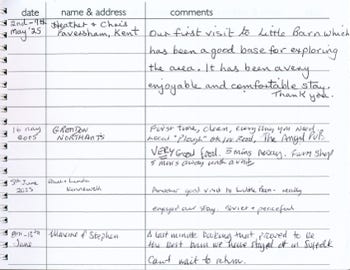 date name & address comments
2nd-9th May '25 Heather & Chris Faversham, Kent Our first visit to Little Barn which
has been a good base for exploring
the area. It has been a very
enjoyable and comfortable stay.
Thank you.
16 May 2005 GRETTON NORTHANTS First time, clean, everything you need.
Local "Plough" ok for food. The Angel Pub
VERY Good food. 5 mins away. Farm Shop
5 mins away
5th June Another good visit to Little Barn - really
enjoyed our stay. peaceful
8th-15th June & Stephen A last minute booking that proved to be
the best barn we have stayed at in Suffolk
Can't wait to return.